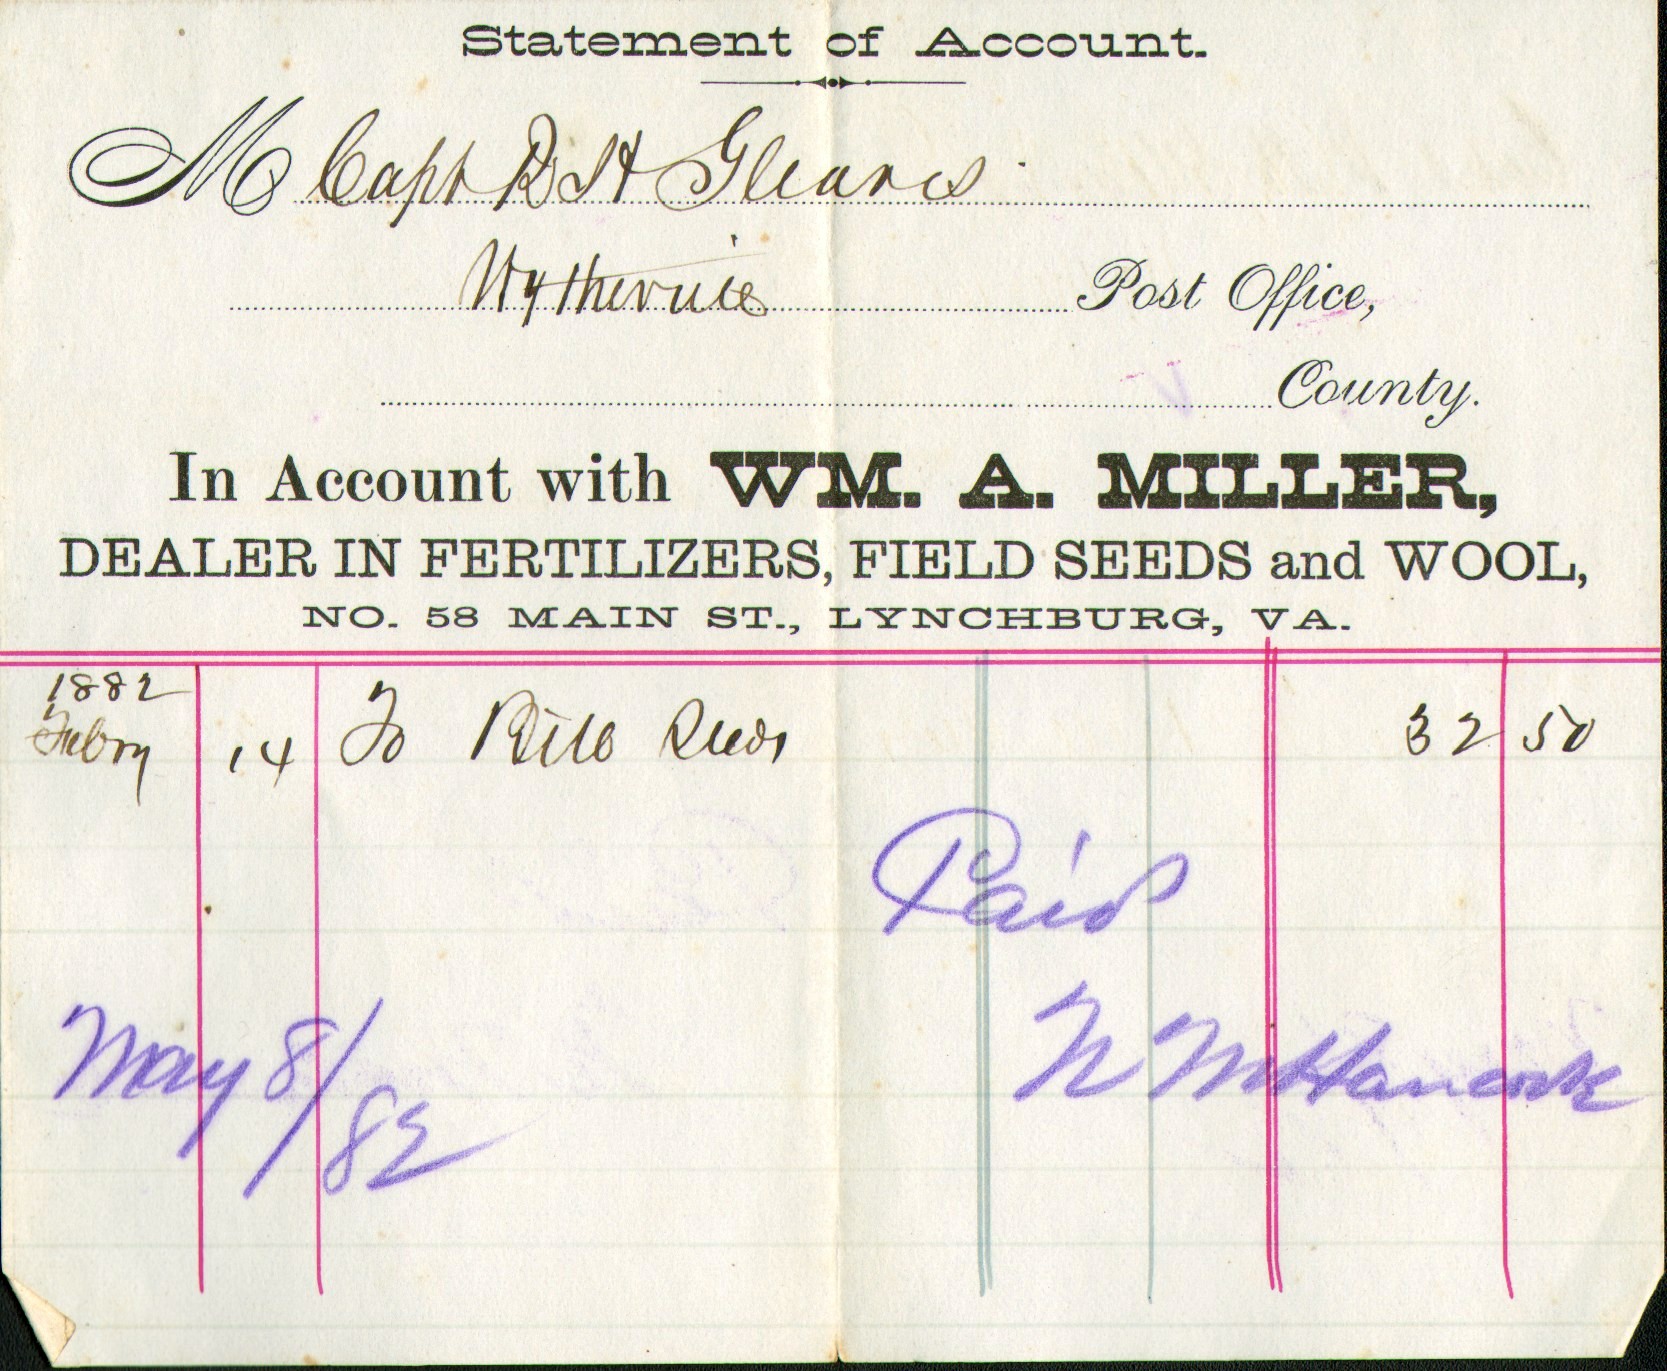 Statement of Account.
M Capt R H Gleaves
Wytheville Post Office,
County.
In Account with WM. A. MILLER,
DEALER IN FERTILIZERS, FIELD SEEDS and WOOL,
NO. 58 MAIN ST., LYNCHBURG, VA.
1882
Febry 14 To Bill 32 50
Paid
May 8/82
Hancock